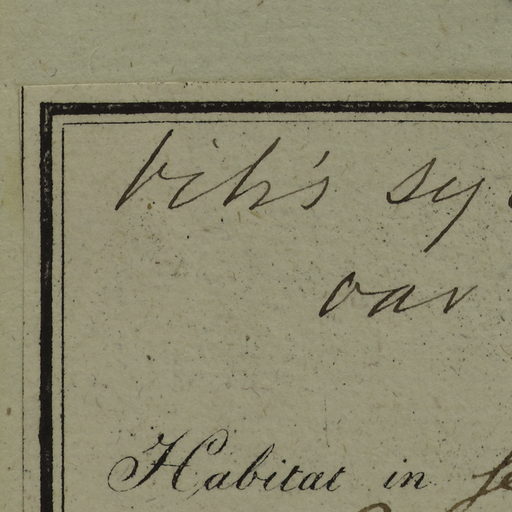 Vitis sy
var
Habitat in